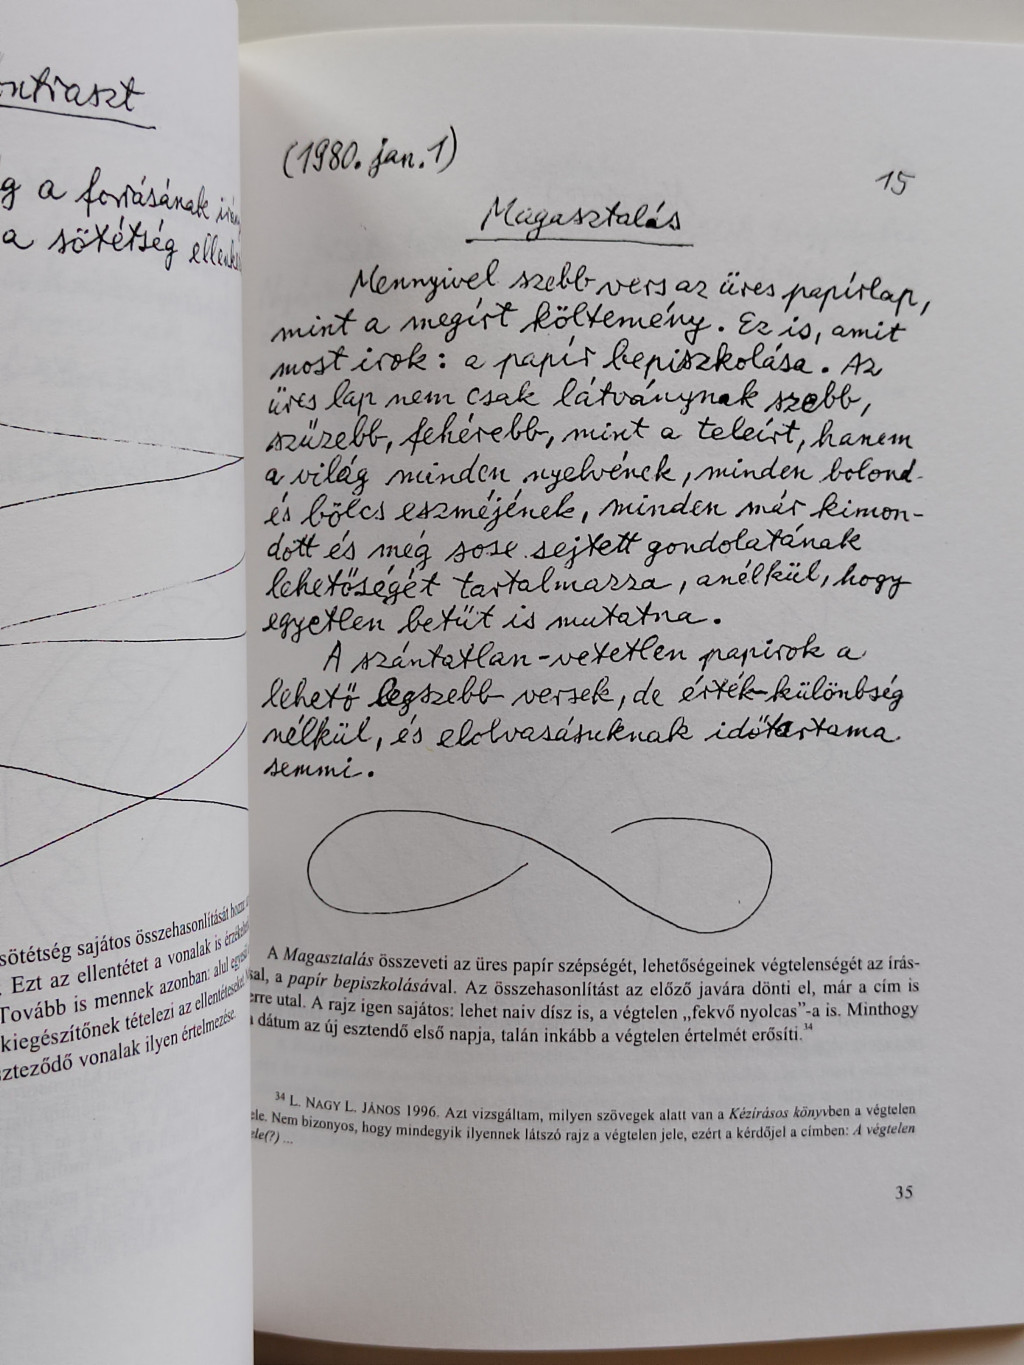 ontraszt
g a forrásának
a sötétség
sötétség sajátos összehasonlítását
Ezt az ellentétet a vonalak is
Tovább is mennek azonban: alul
kiegészítőnek tételezi az ellentéteseket.
szteződő vonalak ilyen értelmezése.
(1980. jan. 1)
15
Magasztalás
Mennyivel szebb vers az üres papírlap,
mint a megírt költemény. Ez is, amit
most irok: a papír bepiszkolása. Az
üres lap nem csak látványnak szebb,
szűzebb, fehérebb, mint a teleírt, hanem
a világ minden nyelvének, minden bolond
és bölcs eszméjének, minden már kimon-
dott és még sose sejtett gondolatának
lehetőségét tartalmazza, anélkül, hogy
egyetlen betűt is mutatna.
A szántatlan-vetetlen papirok a
lehető legszebb versek, de érték-különbség
nélkül, és elolvasásuknak időtartama
semmi.
A Magasztalás összeveti az üres papír szépségét, lehetőségeinek végtelenségét az írás-
sal, a papír bepiszkolásával. Az összehasonlítást az előző javára dönti el, már a cím is
erre utal. A rajz igen sajátos: lehet naiv dísz is, a végtelen „fekvő nyolcas”-a is. Minthogy
a dátum az új esztendő első napja, talán inkább a végtelen értelmét erősíti.34
34 L. NAGY L. JÁNOS 1996. Azt vizsgáltam, milyen szövegek alatt van a Kézírásos könyvben a végtelen
ele. Nem bizonyos, hogy mindegyik ilyennek látszó rajz a végtelen jele, ezért a kérdőjel a címben: A végtelen
ele(?) ...
35